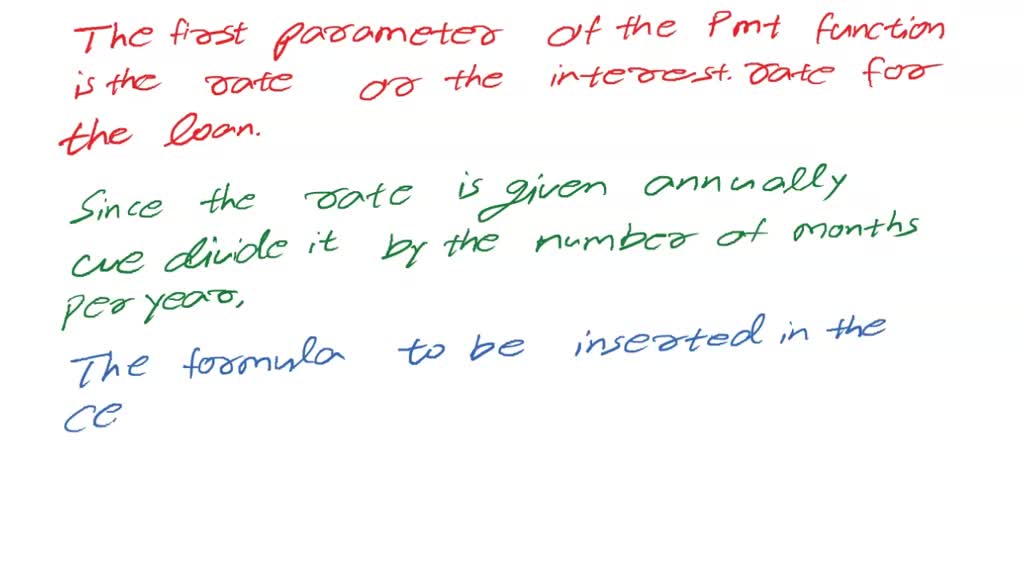 The first parameter of the Pmt function
is the rate or the interest. rate for
the loan.
Since the rate is given annually
we divide it by the number of months
per year,
The formula to be inserted in the
ce